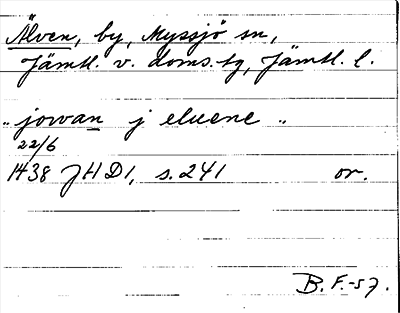 Älven, by, Myssjö sn,
Jämtl. v. doms. tg, Jämtl. l.
"jowan j eluene"
22/6
1438 JHD1, s. 241 or.
B. F. -57.